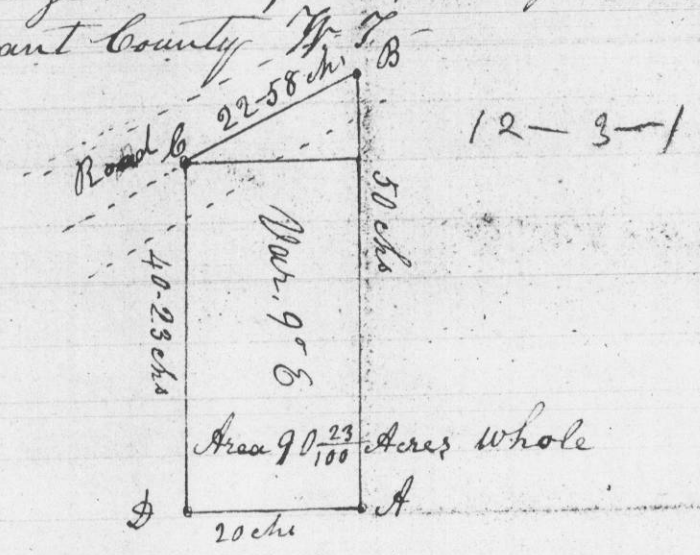 ant County W. T.
B
22-58 ch.
12 - 3 - 1
Road C
50 chs
Var. 9° E
40-23 chs
Area 90 23/100 Acres Whole
D
A
20 chs